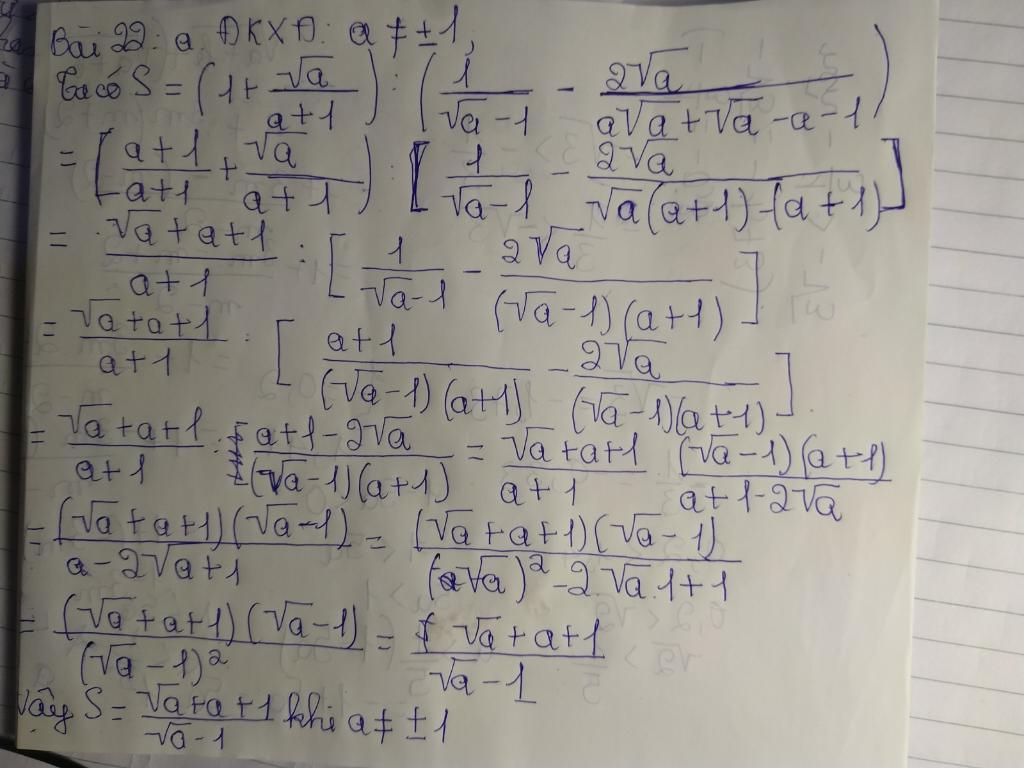 Bài 22: a. ĐKXĐ: a ≠ ±1,
Ta có S = (1 + √a/(a+1)) : (1/(√a-1) - 2√a/(a√a+√a-a-1))
= [(a+1)/(a+1) + √a/(a+1)) : [1/(√a-1) - 2√a/(√a(a+1)-(a+1))]
= (√a+a+1)/(a+1) : [1/(√a-1) - 2√a/((√a-1)(a+1))]
= (√a+a+1)/(a+1) : [(a+1)/((√a-1)(a+1)) - 2√a/((√a-1)(a+1))]
= (√a+a+1)/(a+1) : (a+1-2√a)/((√a-1)(a+1)) = (√a+a+1)/(a+1) . ((√a-1)(a+1))/(a+1-2√a)
= ((√a+a+1)(√a-1))/(a-2√a+1) = ((√a+a+1)(√a-1))/((√a)²-2√a.1+1)
= ((√a+a+1)(√a-1))/(√a-1)² = (√a+a+1)/(√a-1)
Vậy S = (√a+a+1)/(√a-1) khi a ≠ ±1